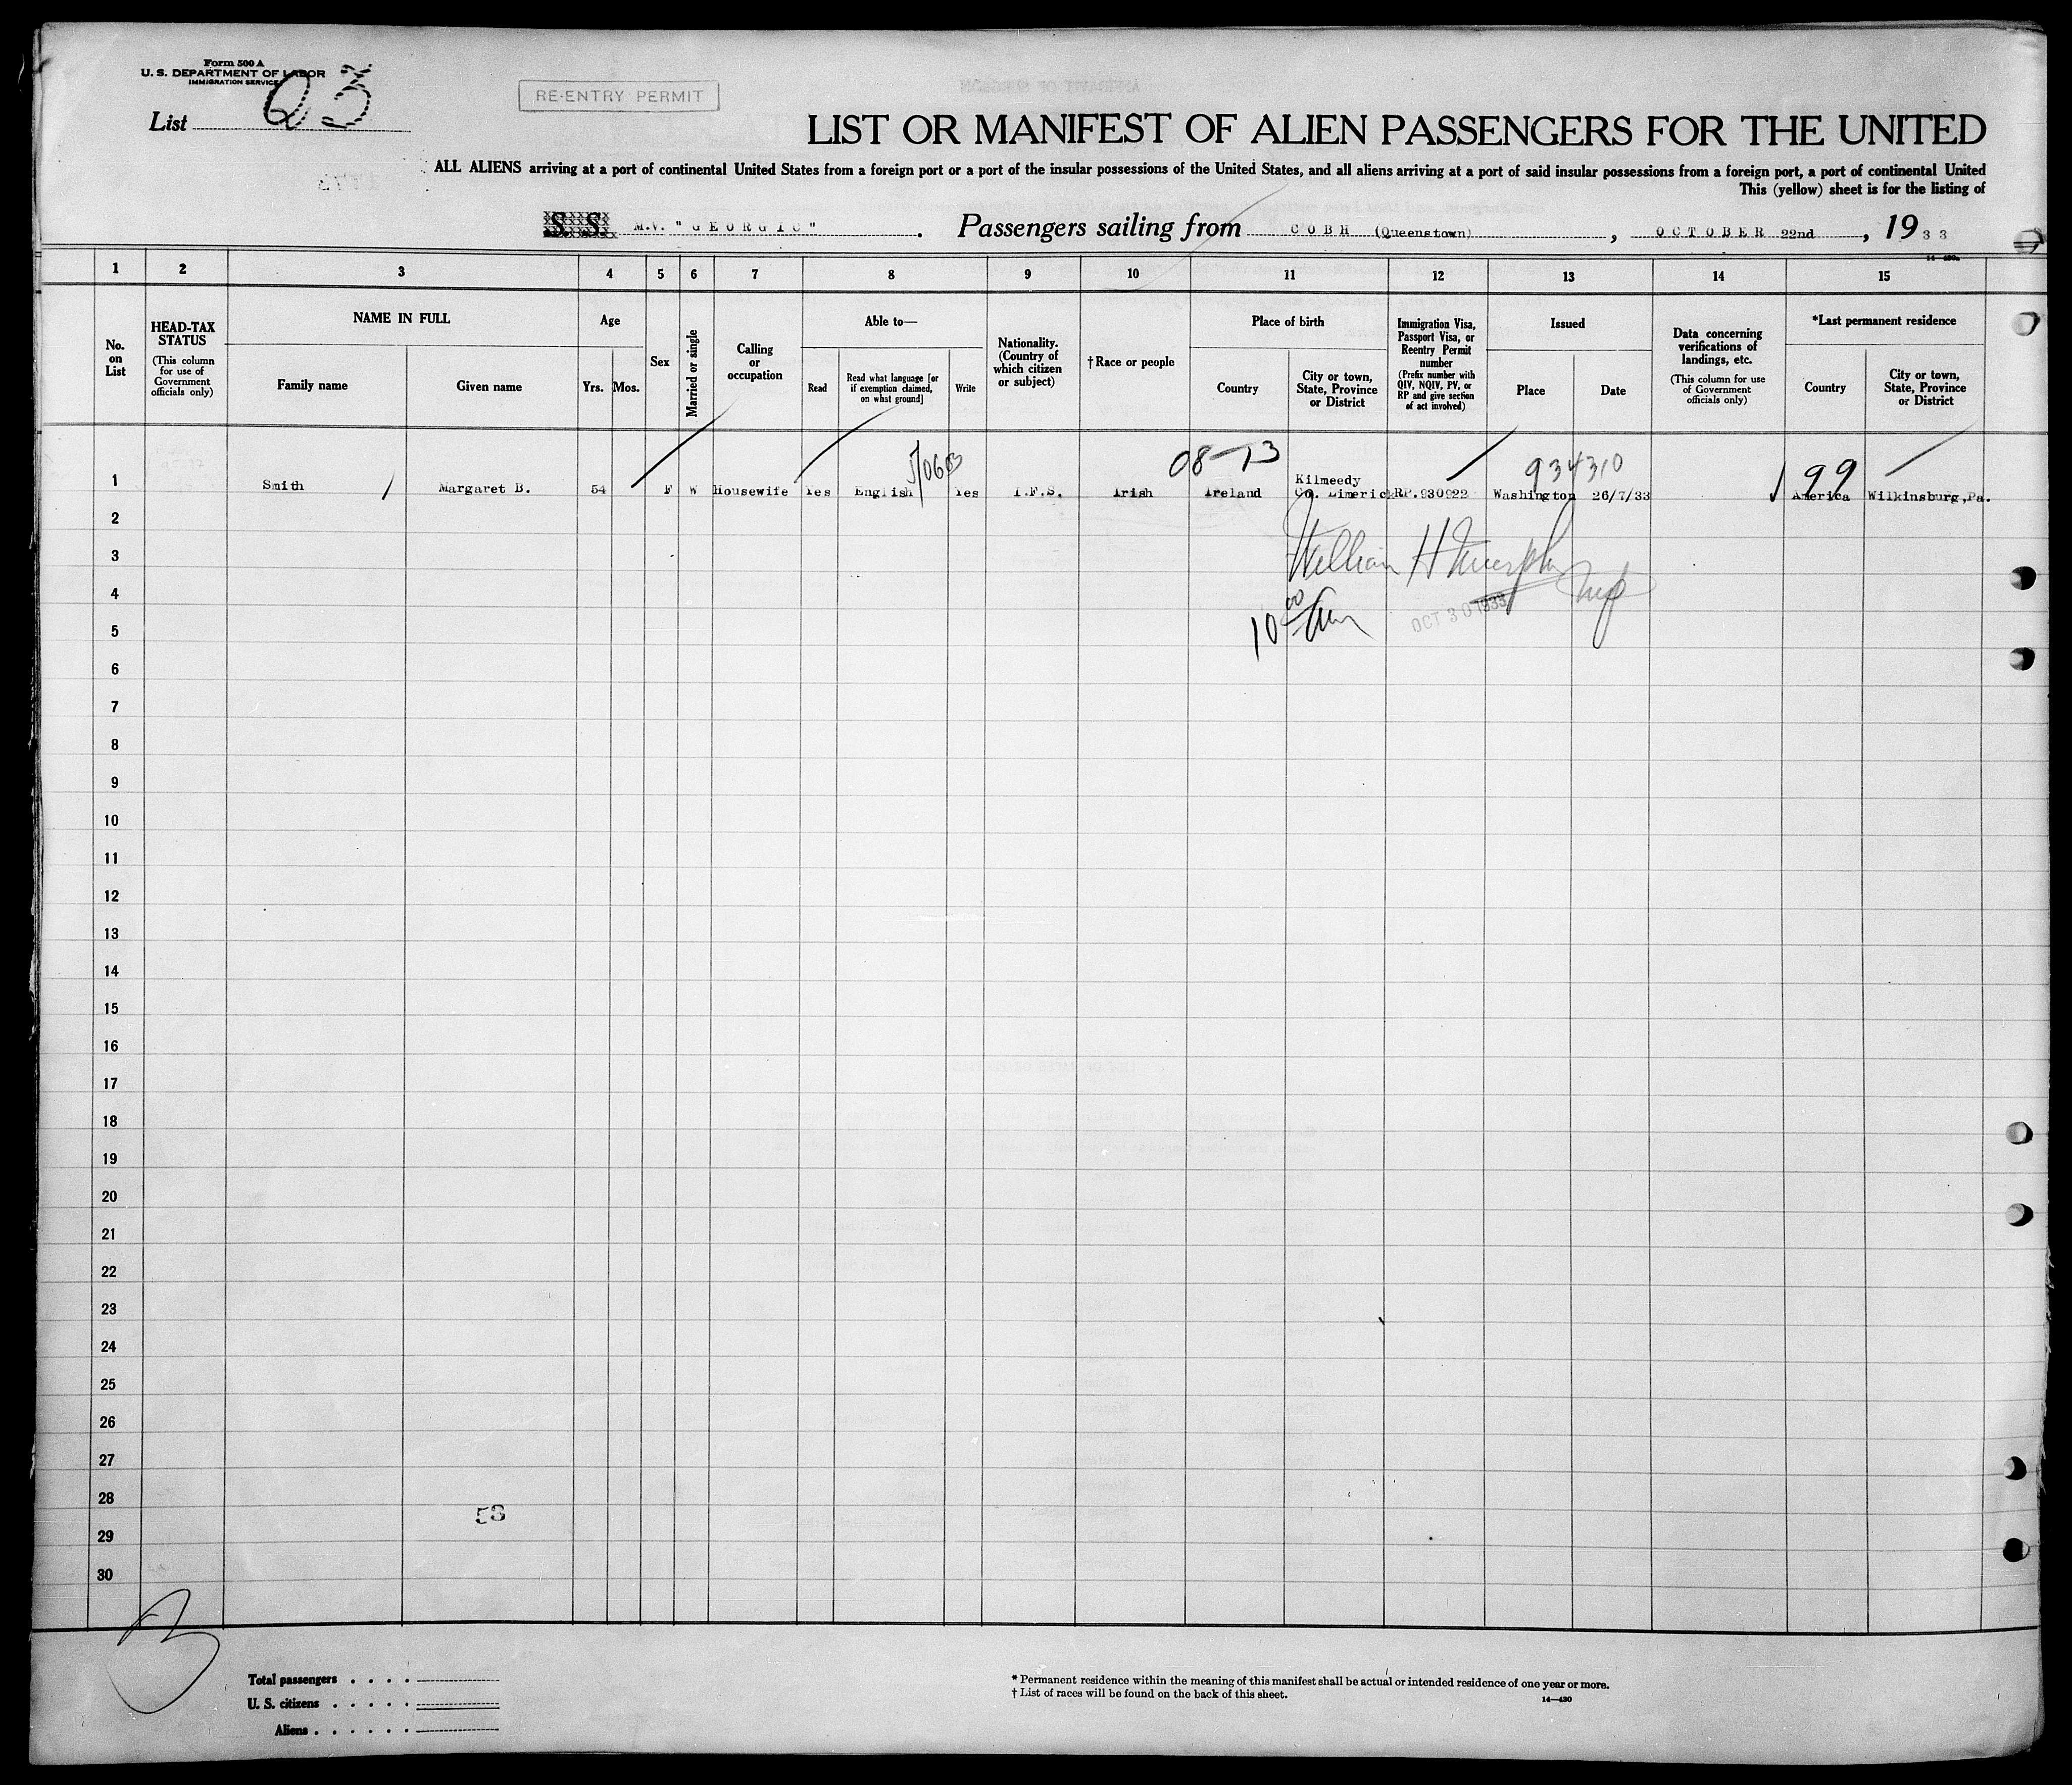 Form 500 A
U. S. DEPARTMENT OF LABOR
IMMIGRATION SERVICE
List 23
RE-ENTRY PERMIT
LIST OR MANIFEST OF ALIEN PASSENGERS FOR THE UNITED
ALL ALIENS arriving at a port of continental United States from a foreign port or a port of the insular possessions of the United States, and all aliens arriving at a port of said insular possessions from a foreign port, a port of continental United
This (yellow) sheet is for the listing of
S. S. M.V. "GEORGIC". Passengers sailing from COBH (Queenstown), OCTOBER 22nd, 1933
14—430
1 2 3 4 5 6 7 8 9 10 11 12 13 14 15
No. on List
HEAD-TAX STATUS
(This column for use of Government officials only)
NAME IN FULL
Family name
Given name
Age
Yrs.
Mos.
Sex
Married or single
Calling or occupation
Able to—
Read
Read what language [or if exemption claimed, on what ground]
Write
Nationality. (Country of which citizen or subject)
†Race or people
Place of birth
Country
City or town, State, Province or District
Immigration Visa, Passport Visa, or Reentry Permit number
(Prefix number with QIV, NQIV, PV, or RP and give section of act involved)
Issued
Place
Date
Data concerning verifications of landings, etc.
(This column for use of Government officials only)
*Last permanent residence
Country
City or town, State, Province or District
08-13
934310
199
1 Smith Margaret B. 54 F W Housewife Yes English Yes I.F.S. Irish Ireland Kilmeedy Co. Limerick RP.930922 Washington 26/7/33 America Wilkinsburg, Pa.
2
William H Murphy
3
4
OCT 30 1933
10 00
5
6
7
8
9
10
11
12
13
14
15
16
17
18
19
20
21
22
23
24
25
26
27
28
53
29
30
Total passengers . . . .
U. S. citizens . . . . .
Aliens . . . . . .
* Permanent residence within the meaning of this manifest shall be actual or intended residence of one year or more.
† List of races will be found on the back of this sheet.
14—430